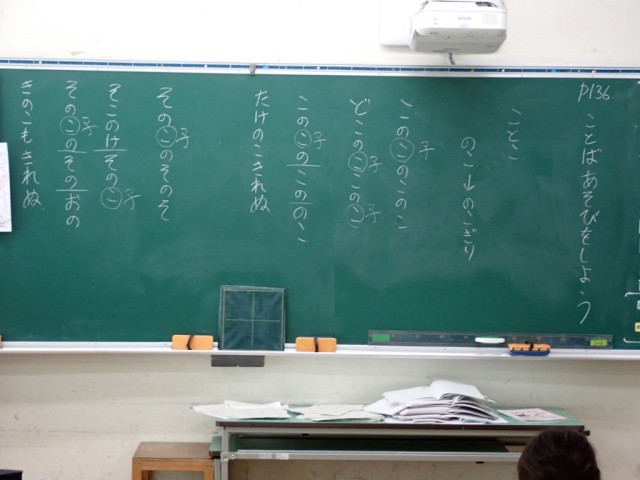 p136.
ことばあそびをしよう
ことこ
のこ→のこぎり
このこ子のこのこ
どこのこ子このこ子
このこ子のこののこ
たけのこきれぬ
そのこ子のそのそ
そこのけそのこ子
そのこ子のそのおの
きのこもきれぬ
EPSON